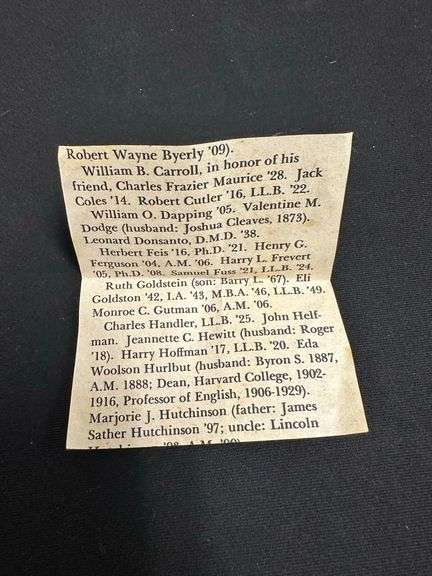 Robert Wayne Byerly '09).
William B. Carroll, in honor of his
friend, Charles Frazier Maurice '28. Jack
Coles '14. Robert Cutler '16, LL.B. '22.
William O. Dapping '05. Valentine M.
Dodge (husband: Joshua Cleaves, 1873).
Leonard Donsanto, D.M.D. '38.
Herbert Feis '16, Ph.D. '21. Henry G.
Ferguson '04, A.M. '06. Harry L. Frevert
'05, Ph.D. '08. Samuel Fuss '21, LL.B. '24.
Ruth Goldstein (son: Barry L. '67). Eli
Goldston '42, I.A. '43, M.B.A. '46, LL.B. '49.
Monroe C. Gutman '06, A.M. '06.
Charles Handler, LL.B. '25. John Helf-
man. Jeannette C. Hewitt (husband: Roger
'18). Harry Hoffman '17, LL.B. '20. Eda
Woolson Hurlbut (husband: Byron S. 1887,
A.M. 1888; Dean, Harvard College, 1902-
1916, Professor of English, 1906-1929).
Marjorie J. Hutchinson (father: James
Sather Hutchinson '97; uncle: Lincoln